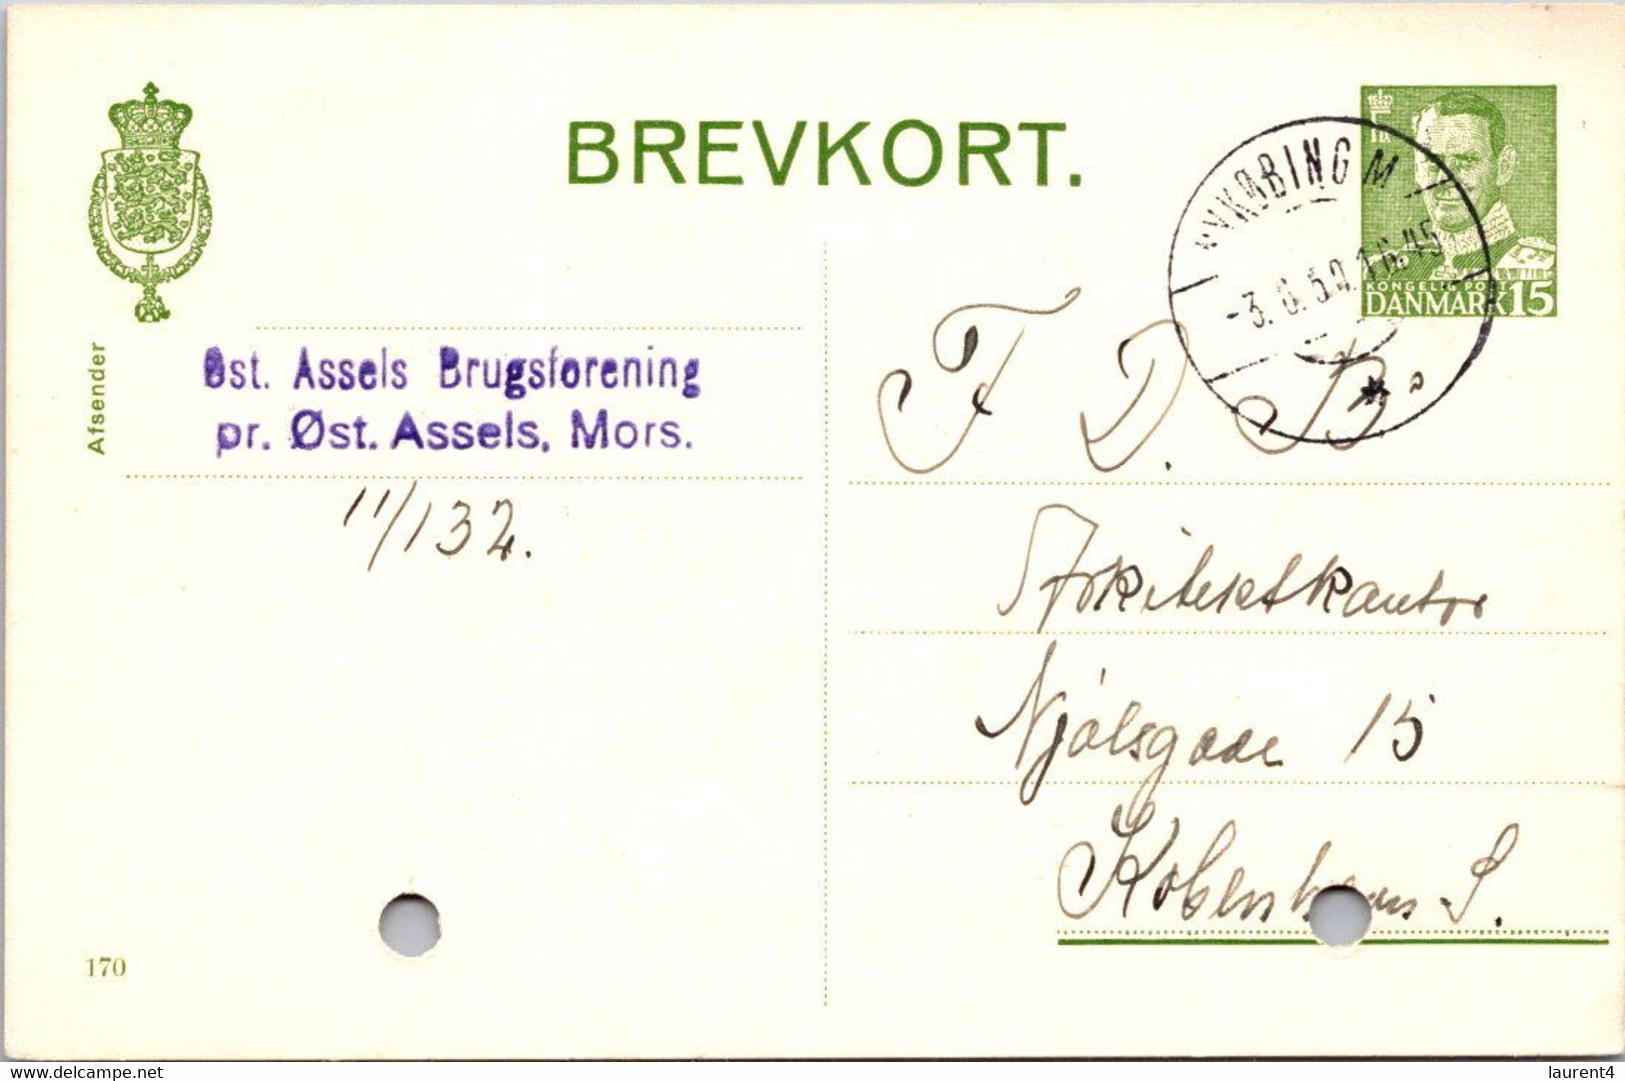 BREVKORT.
KONGELIG POST
DANMARK 15
NYKØBING M
-3. 8. 50. 16.45
Afsender
Øst. Assels Brugsforening
pr. Øst. Assels, Mors.
11/132.
F. D. B.
Arkitektkontor
Njalsgade 15
København S.
170
laurent4